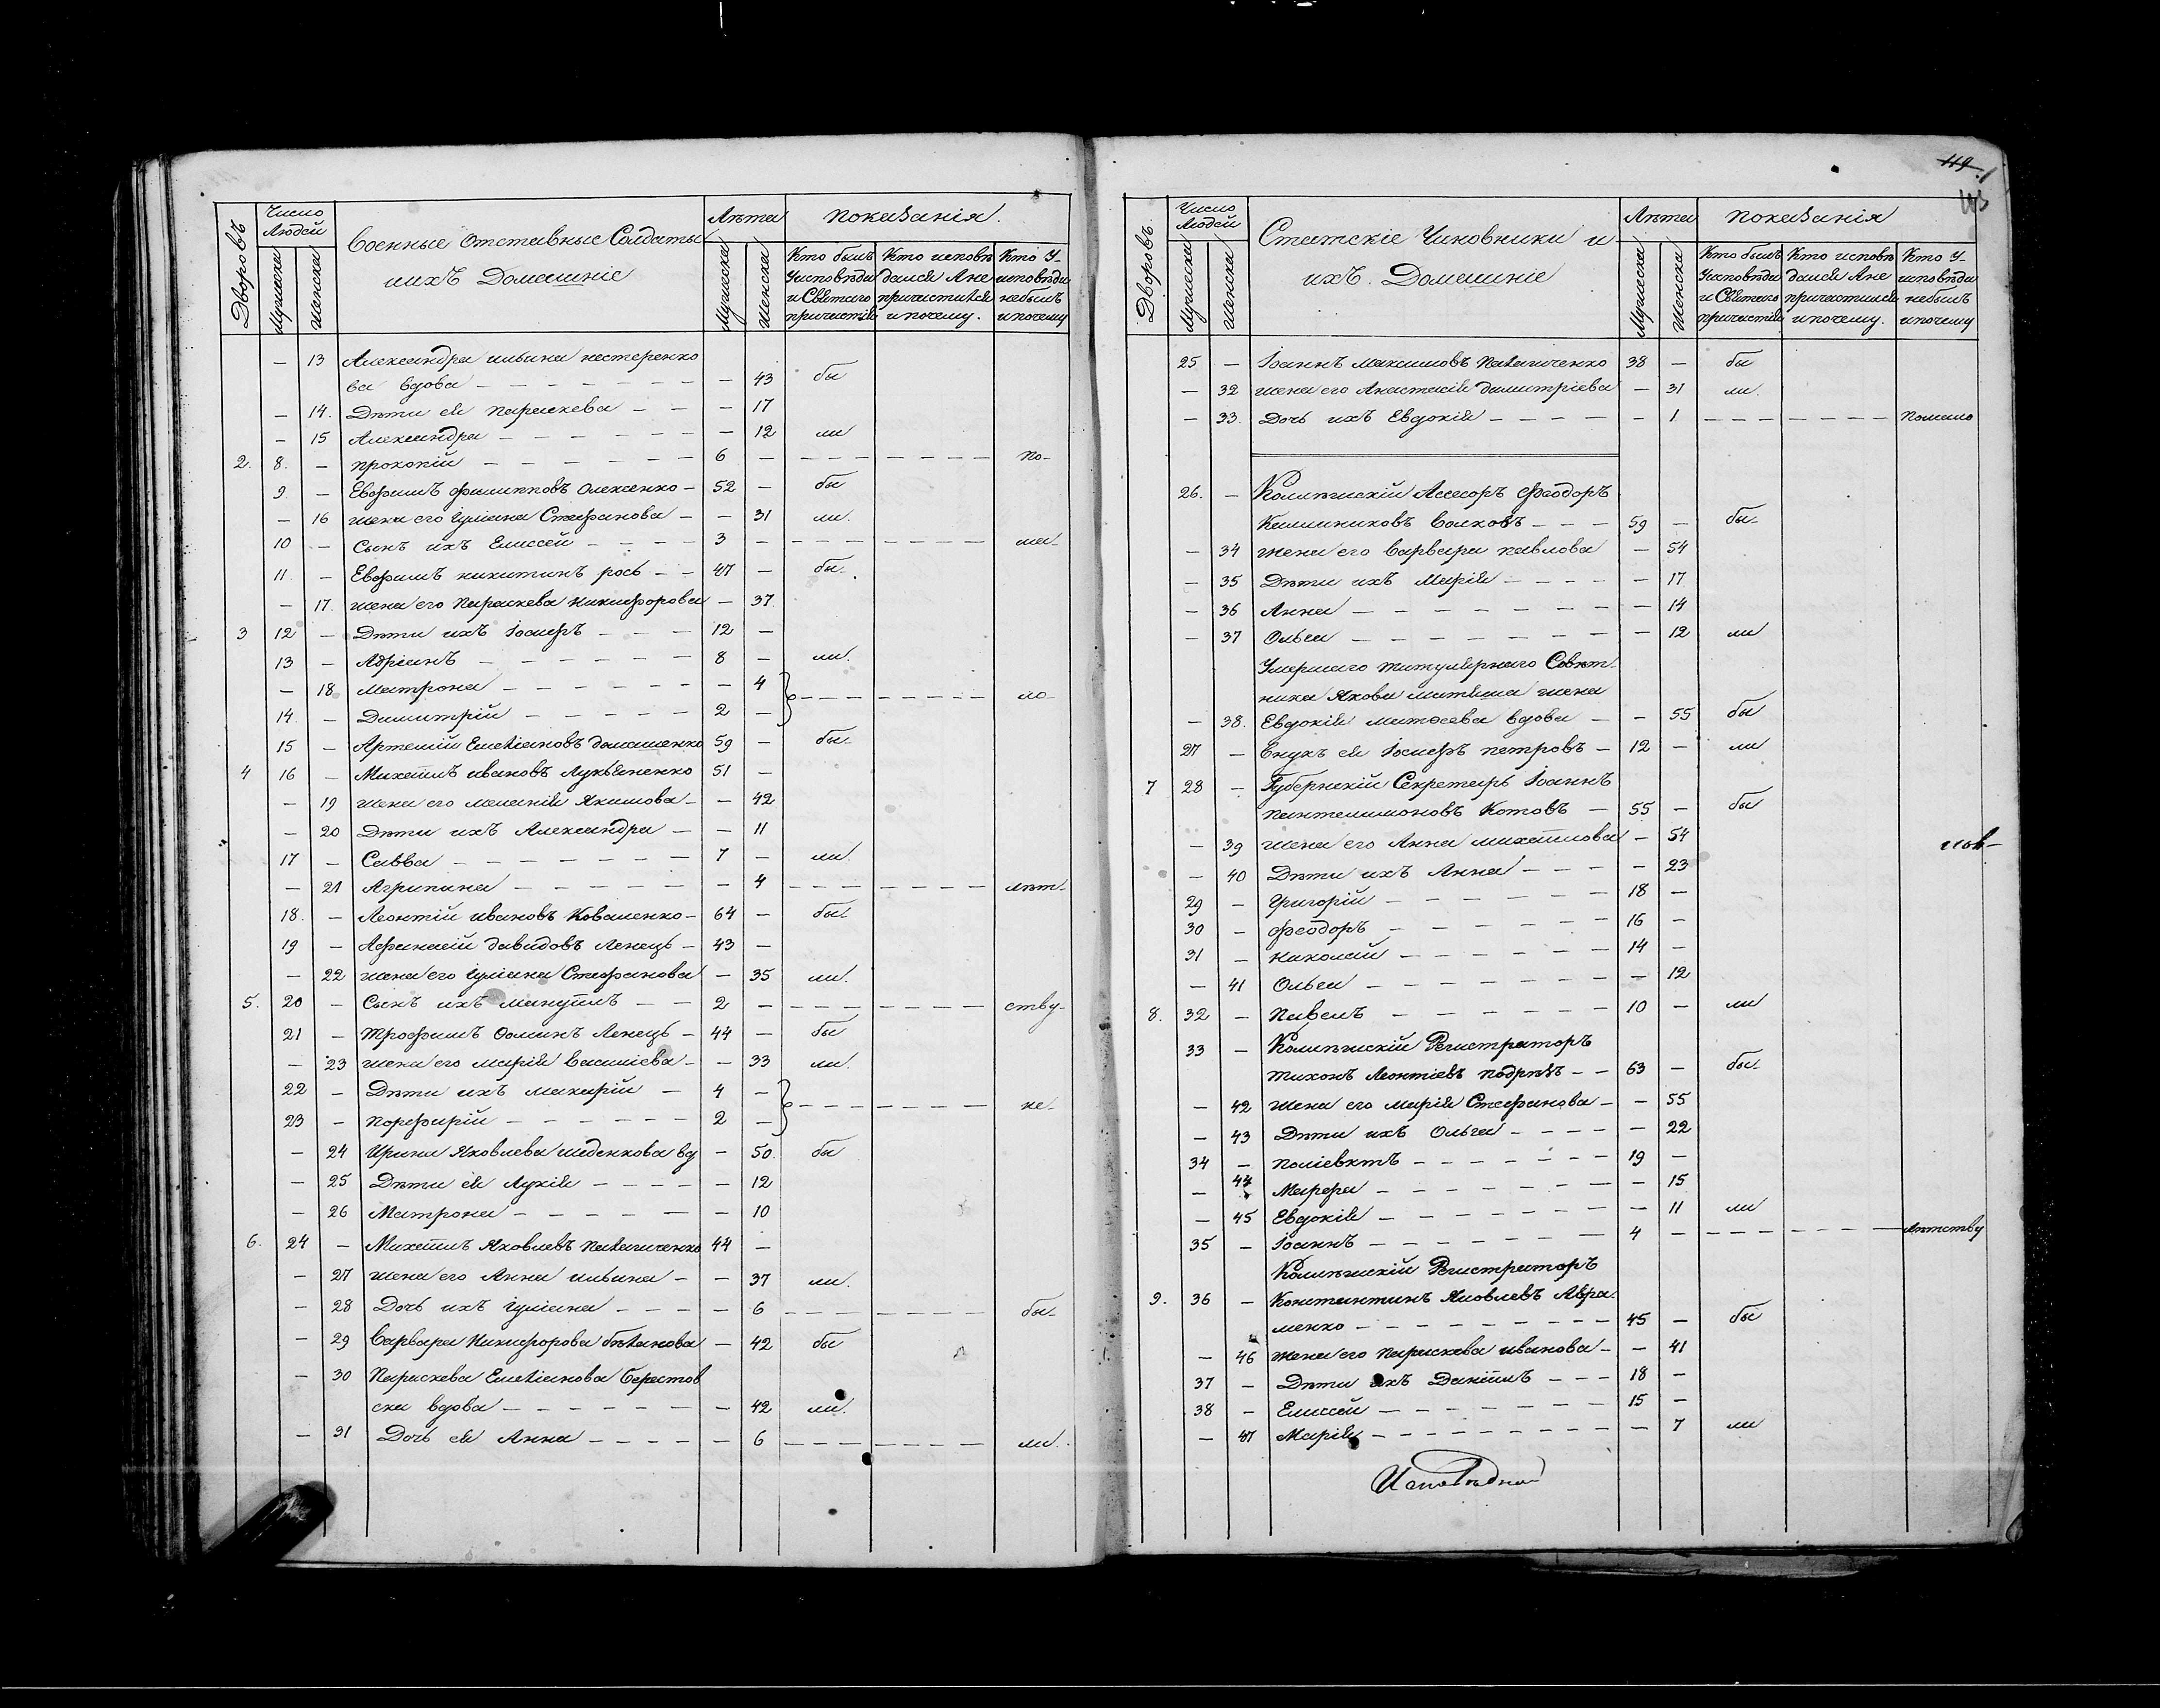 Дворовъ Число Людей Военные отставные Солдаты Лѣта показанія.
Мужеска женска ихъ Домашніе Мужеска женска
Кто былъ Кто исповѣ Кто У-
Уисповѣди дался Ане исповѣди
и Святаго причастился небылъ
причастія ипочему. ипочему
— 13 Александра ильина нестеренко
ва вдова — — 43 бы
— 14. Дѣти ея Параскева — — 17
— 15 Александра — — 12 ли
2. 8. — прокопій — 6 — — — по-
9. — Евфимъ филипповъ Олексенко — 52 — бы
— 16 жена его Іуліана Стефанова — — 31 ли.
10 — Сынъ ихъ Елиссей — 3 — — —
11. — Евфимъ никитинъ рось — 47 — бы-
— 17. жена его Параскева Никифорова — 37.
3 12 — Дѣти ихъ Іосифъ — 12 —
13 — Адріанъ — 8 — ли.
— 18 Матрона — — 4
14. — Димитрій — 2 — — — ло-
15 — Артемій Емеліановъ домашенко 59 — бы-
4 16 — Михаилъ ивановъ Лукьяненко 51 —
— 19 жена его меланія Якимова — — 42
— 20 Дѣти ихъ Александра — — 11
17 — Савва — 7 — ли.
— 21 Агрипина — — 4 — — лѣт-
18. — Леонтій ивановъ Коваленко — 64 — бы-
19 — Афанасій давидовъ Ленецъ — 43 —
— 22 жена его Іуліана Стефанова — 35 ли.
5. 20 — Сынъ ихъ мануилъ — 2 — — — ству-
21 — Трофимъ Ѳоминъ Ленецъ — 44 — бы
— 23 жена его марія Василіева — — 33 ли.
22 — Дѣти ихъ макарій — 4 —
23 — порфирій — 2 — — — не-
— 24 Ирина Яковлева шеденкова вд — 50. бы
— 25 Дѣти ея Лукія — — 12
— 26 Матрона — — 10
6. 24 — Михаилъ Яковлевъ 44 —
— 27 жена его Анна ильина — — 37 ли.
— 28 Дочь ихъ Іуліана — — 6 — — бы-
— 29 Варвара Никифорова — 42 бы
— 30 Параскева Емеліанова Берестов
ска вдова — — 42 ли.
— 31 Дочь ея Анна — — 6 — — ли.
119.
Дворовъ. Число Людей Статскіе Чиновники и Лѣта показанія
Мужеска женска ихъ. Домашніе Мужеска женска
Кто былъ Кто исповѣ Кто У-
Уисповѣди дался Ане исповѣди
и Святаго причастился небылъ
причастія ипочему. ипочему
25 — Іоаннъ Максимовъ 38 — бы
— 32 жена его Анастасія димитріева — 31 ли.
— 33. Дочь ихъ Евдокія — — 1 — — помало
26. — Колѣжскій Асесоръ Феодоръ
Калинниковъ Волковъ — 59 — бы-
— 34 жена его Варвара павлова — 54
— 35 Дѣти ихъ Марія — — 17
— 36 Анна — — 14
— 37 Ольга — — 12 ли
Умершаго титулярнаго Совѣт-
ника Якова жена
— 38. Евдокія матѳеева вдова — — 55 бы
27 — Внукъ ея Іосифъ петровъ — 12 — ли
7 28 — Губернскій Секретарь Іоаннъ
пантелимоновъ Котовъ — 55 — бы
— 39 жена его Анна михаилова — 54
— 40 Дѣти ихъ Анна — — 23
29 — Григорій — 18 —
30 — феодоръ — 16 —
31 — николай — 14 —
— 41 Ольга — — 12
8. 32 — Павелъ — 10 — ли
33 — Колѣжскій Регистраторъ
тихонъ Леонтіевъ — 63 — бы-
— 42 жена его марія Стефанова — — 55
— 43 Дѣти ихъ Ольга — — 22
34 — поліевктъ — 19 —
— 44 Марфа — — 15
— 45 Евдокія — — 11 ли
35 — Іоаннъ — 4 — — — лѣтству
Колѣжскій Регистраторъ
9. 36 — Константинъ Яковлевъ Авра-
менко — 45 — бы
— 46 жена его параскева иванова — — 41
37 — Дѣти ихъ Даніилъ — 18 —
38 — Елиссей — 15 —
— 47 Марія — — 7 ли